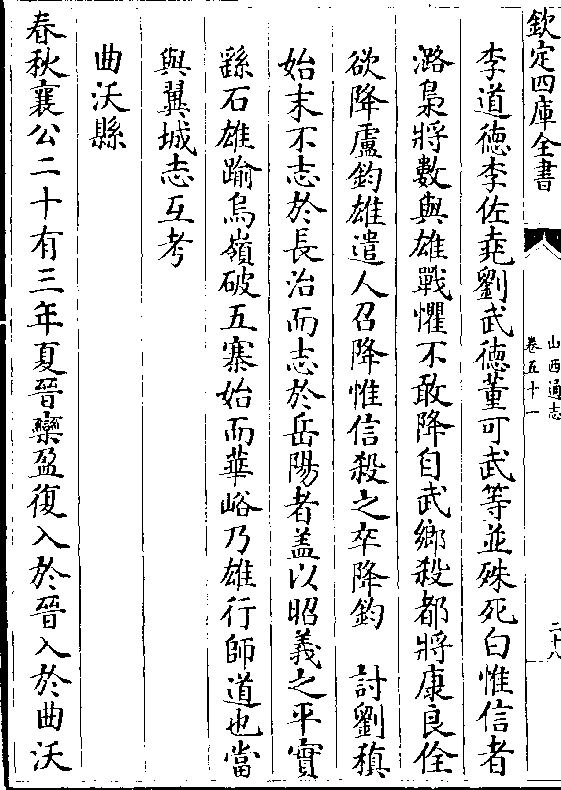 欽定四庫全書
山西通志
卷五十一
二十八
李道德李佐堯劉武徳董可武等並殊死白惟信者
潞梟將數與雄戰懼不敢降自武鄉殺都將康良佺
欲降盧鈞雄遣人召降惟信殺之卒降鈞　討劉稹
始末不志於長治而志於岳陽者盖以昭義之平實
繇石雄踰烏嶺破五寨始而華峪乃雄行師道也當
與翼城志互考
曲沃縣
春秋襄公二十有三年夏晉欒盈復入於晉入於曲沃